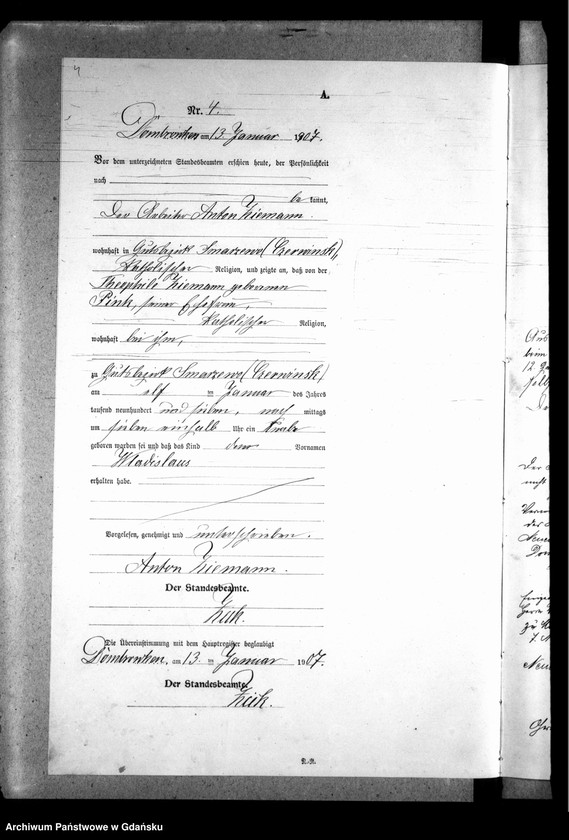 4
A.
Nr. 4.
Dombrowken am 13. Januar 1907.
Vor dem unterzeichneten Standesbeamten erschien heute, der Persönlichkeit
nach
be kannt,
Der Arbeiter Anton Ziemann
wohnhaft in Gutsbezirk Smarzewo (Czerwinsk),
katholischer Religion, und zeigte an, daß von der
Theophile Ziemann geborenen
Pink, seiner Ehefrau,
katholischer Religion,
wohnhaft bei ihm,
zu Gutsbezirk Smarzewo (Czerwinsk)
am elf ten Januar des Jahres
tausend neunhundert und sieben, nach mittags
um sieben einhalb Uhr ein Knabe
geboren worden sei und daß das Kind den Vornamen
Wladislaus
erhalten habe.
Vorgelesen, genehmigt und unterschrieben.
Anton Ziemann.
Der Standesbeamte.
Die Übereinstimmung mit dem Hauptregister beglaubigt
Dombrowken, am 13. ten Januar 1907.
Der Standesbeamte.
Archiwum Państwowe w Gdańsku